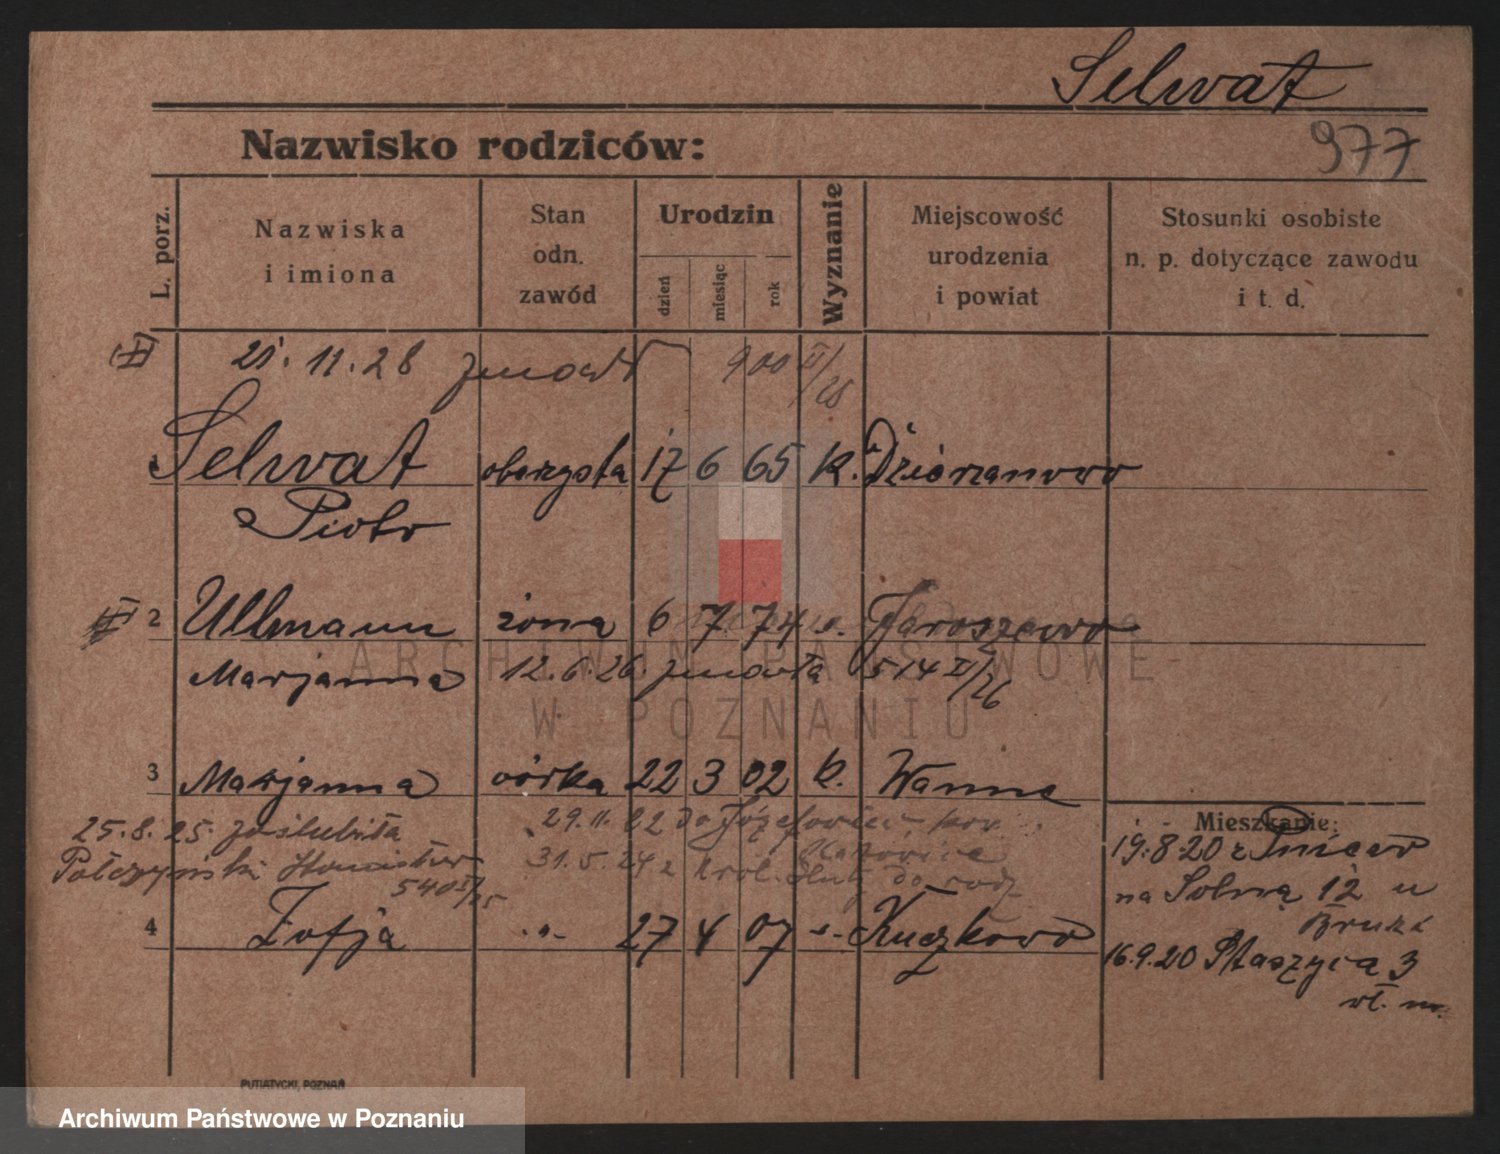 Selwat
977
Nazwisko rodziców:
L. porz.
Nazwiska
i imiona
Stan
odn.
zawód
Urodzin
dzień
miesiąc
rok
Wyznanie
Miejscowość
urodzenia
i powiat
Stosunki osobiste
n. p. dotyczące zawodu
i t. d.
21. 11. 28 zmarł 900 II/28
Selwat oberzysta 17 6 65 k. Dzierzanowo
Piotr
2 Ullmann żona 6 7. 74 Jaroszewo
Marjanna 12. 6. 26. zmarła 514 II/26
3 Marjanna córka 22 3 02 k. Wanne
Mieszkanie:
25. 8. 25. zaślubiła 29. 11. 22 do Józefowiec
19. 8. 20 z
31. 5. 24 z Król. Huty do rodz.
na Solną 12 u
540 II/25
4 Zofja " 27 4 07 Kuczkowo
16. 9. 20 Staszyca 3
PUTIATYCKI, POZNAŃ
ARCHIWUM PAŃSTWOWE
W POZNANIU
Archiwum Państwowe w Poznaniu